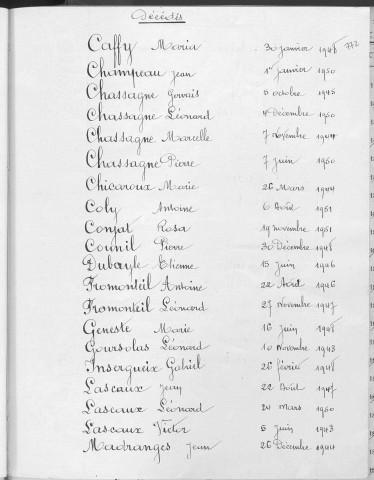 Décédés
Caffy Maria 30 janvier 1946 772
Champeau Jean 1er janvier 1950
Chassagne Gervais 5 octobre 1945
Chassagne Léonard 4 décembre 1950
Chassagne Marcelle 7 novembre 1944
Chassagne Pierre 7 juin 1950
Chicaroux Marie 26 Mars 1944
Coly Antoine 6 Août 1951
Conjat Rosa 19 novembre 1951
Counil Pierre 30 Décembre 1948
Dubayle Etienne 15 juin 1946
Fromonteil Antoine 22 Août 1946
Fromonteil Léonard 27 Novembre 1947
Geneste Marie 16 juin 1948
Goursolas Léonard 10 Novembre 1943
Insergueix Gabriel 26 février 1948
Lascaux Jean 22 Août 1947
Lascaux Léonard 24 Mars 1950
Lascaux Victor 6 juin 1943
Madranges Jean 26 Décembre 1944